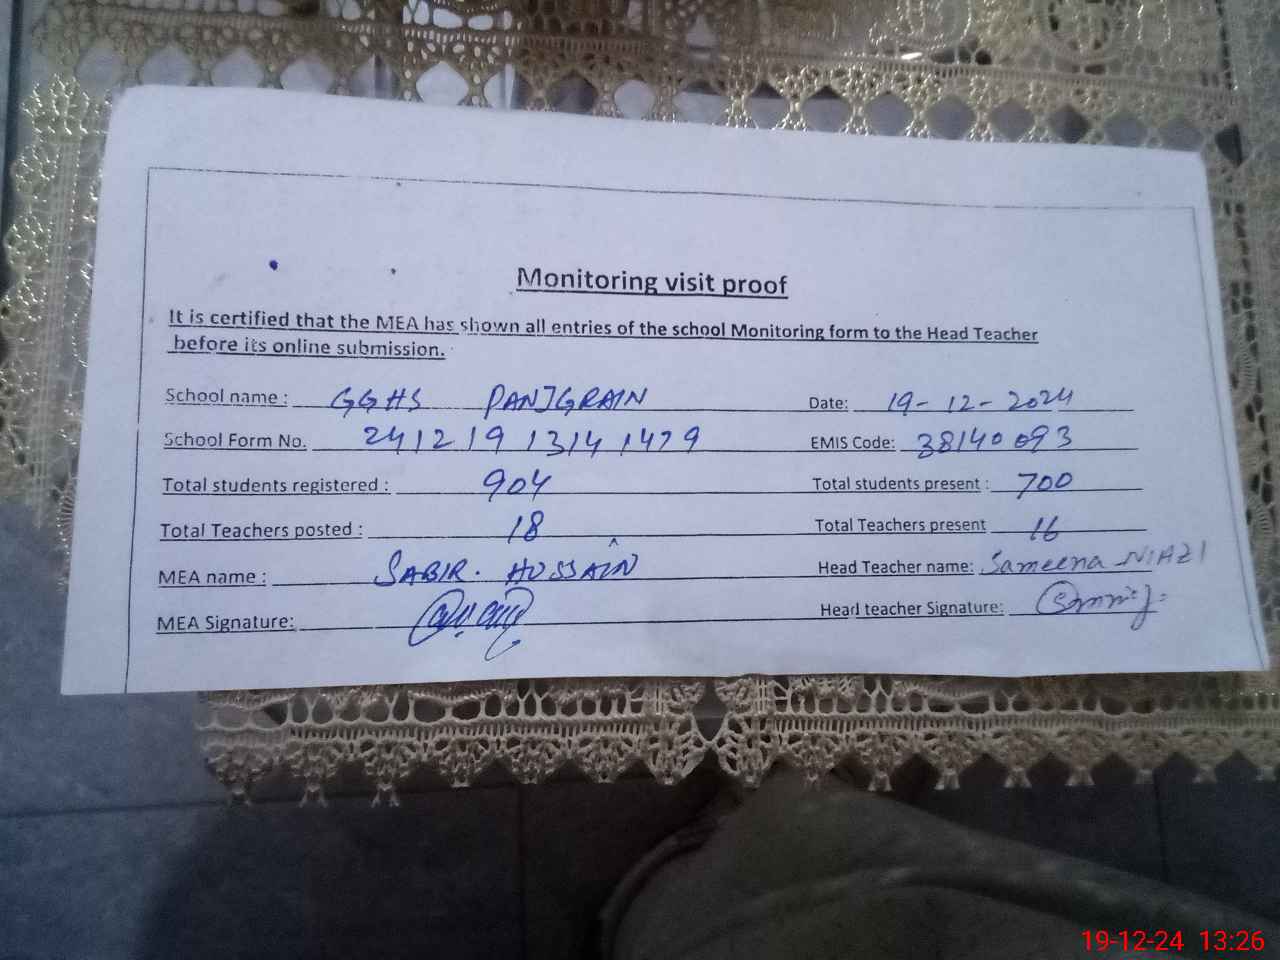 Monitoring visit proof
It is certified that the MEA has shown all entries of the school Monitoring form to the Head Teacher
before its online submission.
School name : GGHS PANJGRAIN Date: 19-12-2024
School Form No. 241219 1314 1479 EMIS Code: 38140093
Total students registered : 904 Total students present : 700
Total Teachers posted : 18 Total Teachers present 16
MEA name : SABIR. HUSSAIN Head Teacher name: Sameena NIAZI
MEA Signature: Head teacher Signature:
19-12-24 13:26